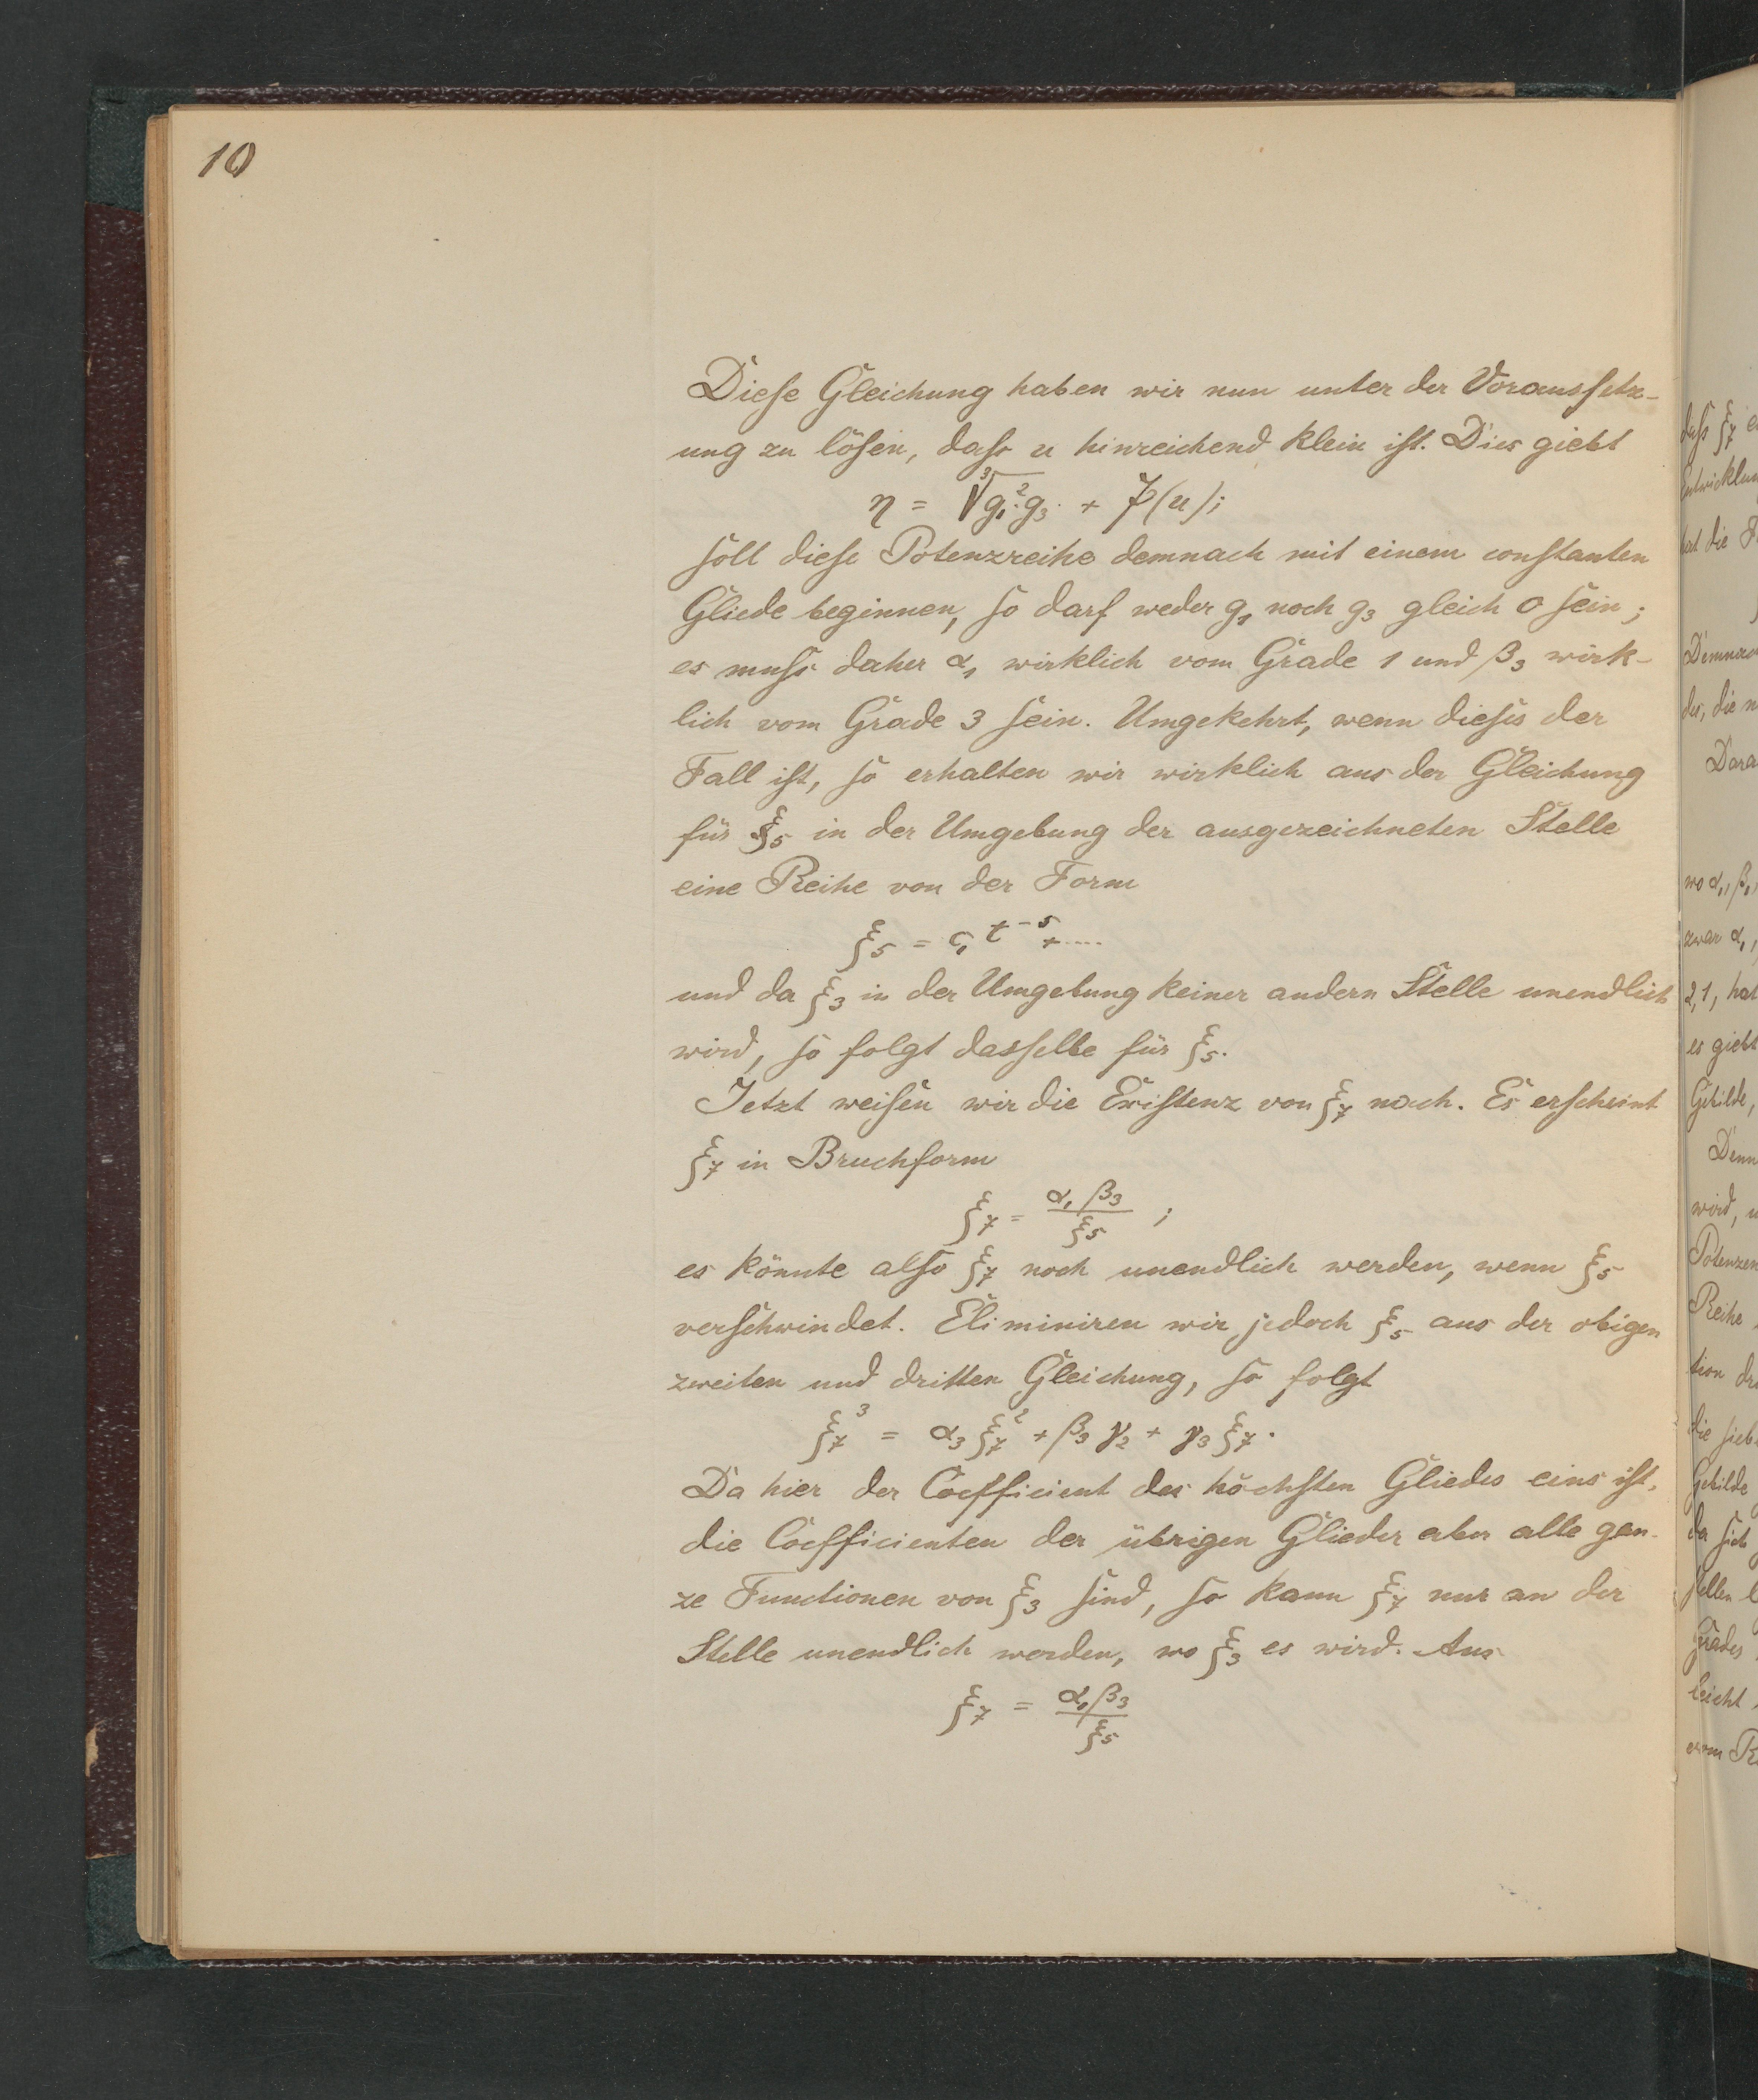 10
Diese Gleichung haben wir nun unter der Voraussetz-
ung zu lösen, dass u hinreichend klein ist. Dies giebt
η = ∛(g₁²·g₃) + 𝔓(u);
soll diese Potenzreihe demnach mit einem constanten
Gliede beginnen, so darf weder g₁ noch g₃ gleich 0 sein;
es muss daher α₁ wirklich vom Grade 1 und β₃ wirk-
lich vom Grade 3 sein. Umgekehrt, wenn dieses der
Fall ist, so erhalten wir wirklich aus der Gleichung
für ξ₅ in der Umgebung der ausgezeichneten Stelle
eine Reihe von der Form
ξ₅ = c₁ t⁻⁵ + ....
und da ξ₃ in der Umgebung keiner andern Stelle unendlich
wird, so folgt dasselbe für ξ₅.
Jetzt weisen wir die Existenz von ξ₇ nach. Es erscheint
ξ₇ in Bruchform
ξ₇ = α₁β₃/ξ₅ ;
es könnte also ξ₇ noch unendlich werden, wenn ξ₅
verschwindet. Eliminiren wir jedoch ξ₅ aus der obigen
zweiten und dritten Gleichung, so folgt
ξ₇³ = α₃ξ₇² + β₃γ₂ + γ₃ξ₇.
Da hier der Coefficient des höchsten Gliedes eins ist,
die Coefficienten der übrigen Glieder aber alle gan-
ze Functionen von ξ₃ sind, so kann ξ₇ nur an der
Stelle unendlich werden, wo ξ₃ es wird. Aus
ξ₇ = α₁β₃/ξ₅
dass ξ₇
hat die
wo α₁, β₁,
zwar α₁,
2,1, hat
es giebt
Gebilde,
Denn
wird,
Potenzen
Reihe
Gebilde
da sich
Grades
leicht